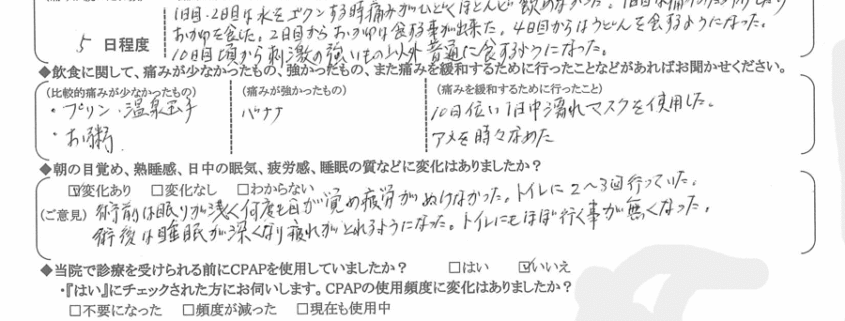 1日目・2日目は水をゴクンする時痛みがひどくほとんど飲めなかった。1日目は痛み
5 日程度
おかゆを食べた。2日目からおかゆは食する事が出来た。4日目からはうどんを食するようになった。
10日目頃から刺激の強いもの以外普通に食するようになった。
◆飲食に関して、痛みが少なかったもの、強かったもの、また痛みを緩和するために行ったことなどがあればお聞かせください。
(比較的痛みが少なかったもの) (痛みが強かったもの) (痛みを緩和するために行ったこと)
・プリン・温泉玉子 バナナ 10日位い1日中濡れマスクを使用した。
・お粥 アメを時々なめた
◆朝の目覚め、熟睡感、日中の眠気、疲労感、睡眠の質などに変化はありましたか?
☑変化あり □変化なし □わからない
(ご意見) 術前は眠りが浅く何度も目が覚め疲労がぬけなかった。トイレに2〜3回行っていた。
術後は睡眠が深くなり疲れがとれるようになった。トイレにもほぼ行く事が無くなった。
◆当院で診療を受けられる前にCPAPを使用していましたか? □はい ☑いいえ
・『はい』にチェックされた方にお伺いします。CPAPの使用頻度に変化はありましたか?
□不要になった □頻度が減った □現在も使用中